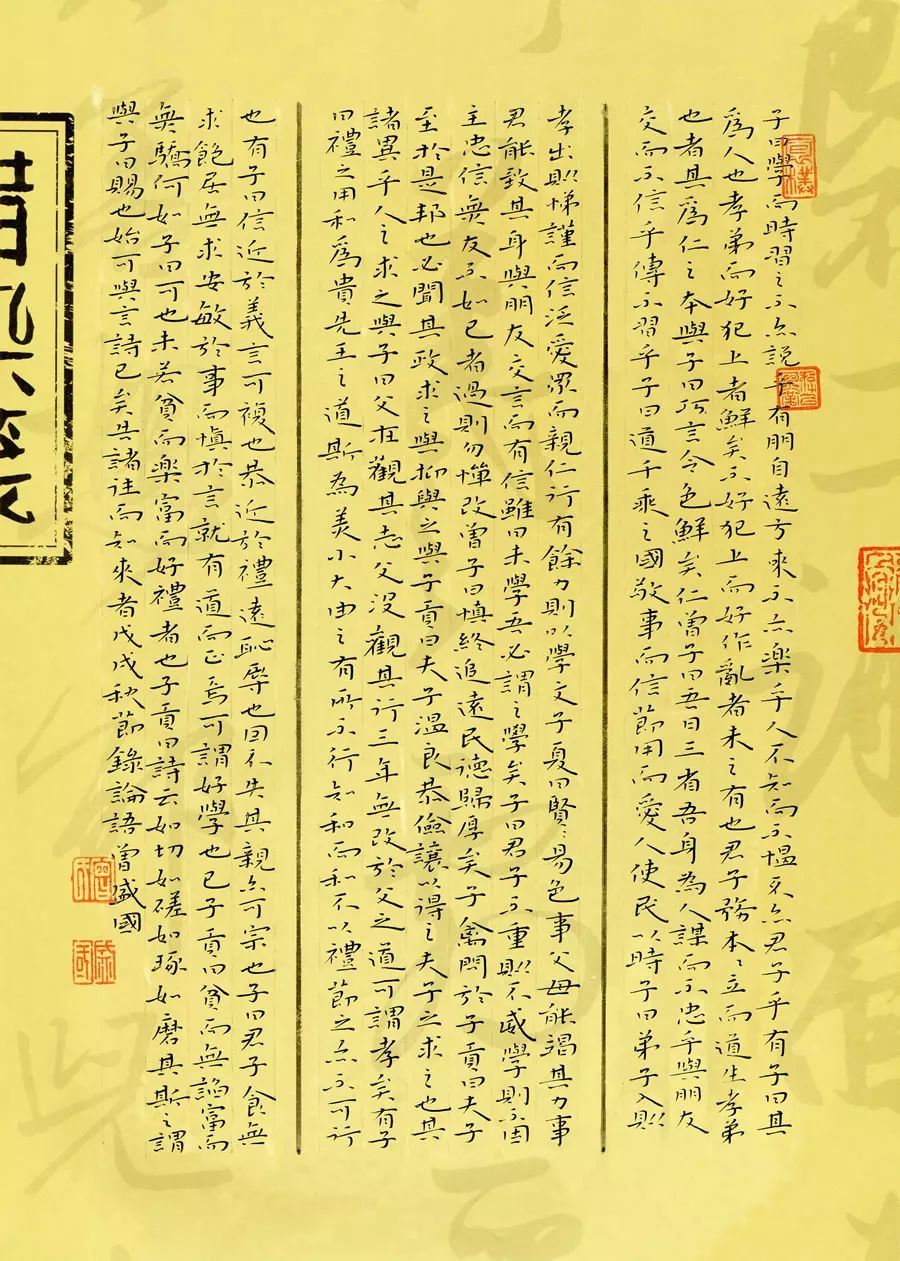 子曰學而時習之不亦說乎有朋自遠方來不亦樂乎人不知而不慍不亦君子乎有子曰其
爲人也孝弟而好犯上者鮮矣不好犯上而好作亂者未之有也君子務本〻立而道生孝弟
也者其爲仁之本與子曰巧言令色鮮矣仁曾子曰吾日三省吾身為人謀而不忠乎與朋友
交而不信乎傳不習乎子曰道千乘之國敬事而信節用而愛人使民以時子曰弟子入則
孝出則悌謹而信泛愛眾而親仁行有餘力則以學文子夏曰賢〻易色事父母能竭其力事
君能致其身與朋友交言而有信雖曰未學吾必謂之學矣子曰君子不重則不威學則不固
主忠信無友不如已者過則勿憚改曾子曰慎終追遠民德歸厚矣子禽問於子貢曰夫子
至於是邦也必聞其政求之與抑與之與子貢曰夫子溫良恭儉讓以得之夫子之求之也其
諸異乎人之求之與子曰父在觀其志父沒觀其行三年無改於父之道可謂孝矣有子
曰禮之用和爲貴先王之道斯為美小大由之有所不行知和而和不以禮節之亦不可行
也有子曰信近於義言可複也恭近於禮遠恥辱也因不失其親亦可宗也子曰君子食無
求飽居無求安敏於事而慎於言就有道而正焉可謂好學也已子貢曰貧而無諂富而
無驕何如子曰可也未若貧而樂富而好禮者也子貢曰詩云如切如磋如琢如磨其斯之謂
與子曰賜也始可與言詩已矣告諸往而知來者戊戌秋節錄論語曾盛國